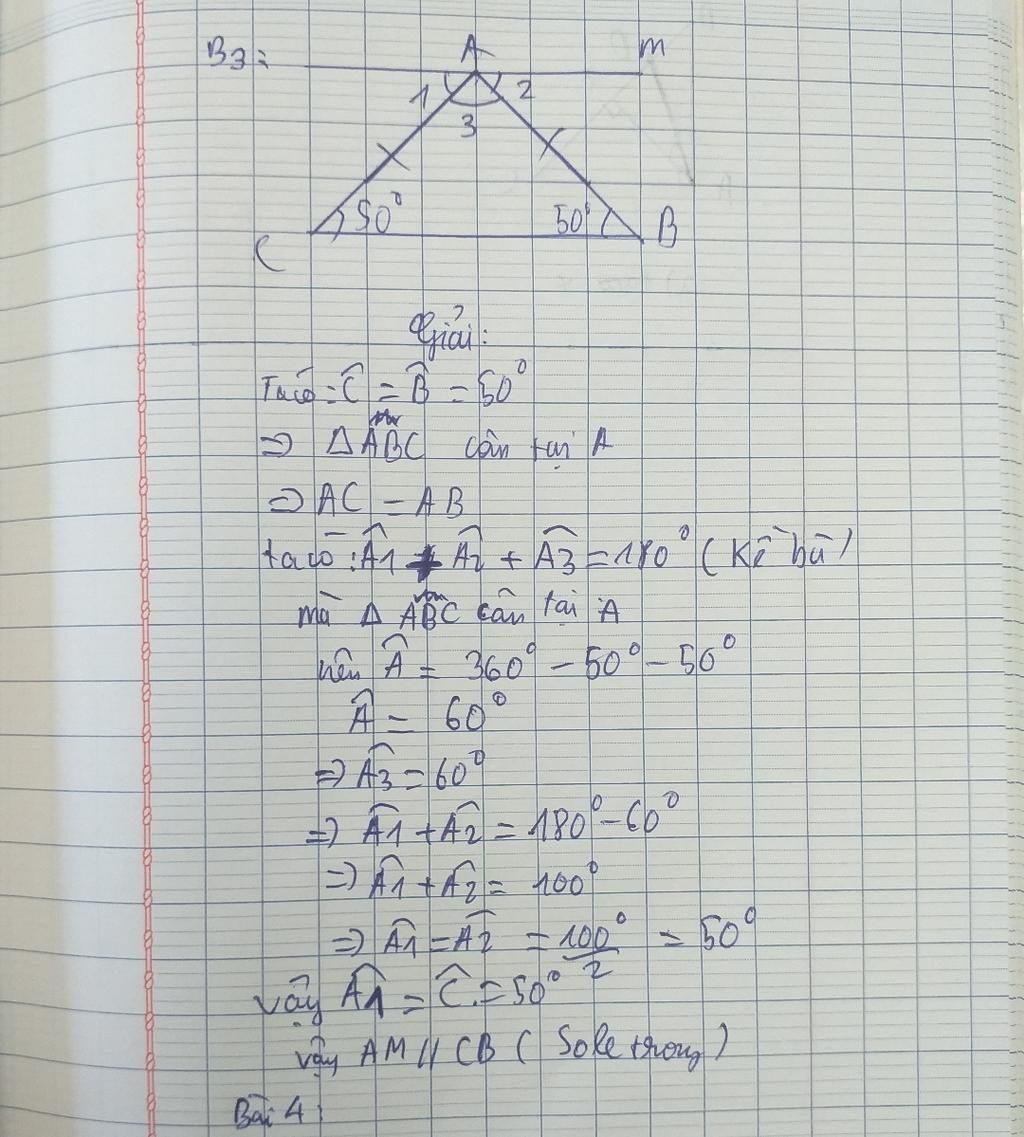 B3:
A m
1 2
3
50° 50°
C B
Giải:
Ta có: Ĉ = B̂ = 50°
=> △ABC cân tại A
=> AC = AB
ta có: Â1 + Â2 + Â3 = 180° (Kề bù)
mà △ ABC cân tại A
nên Â = 360° - 50° - 50°
Â = 60°
=> Â3 = 60°
=> Â1 + Â2 = 180° - 60°
=> Â1 + Â2 = 100°
=> Â1 = Â2 = 100°/2 = 50°
vậy Â1 = Ĉ = 50°
vậy AM // CB ( Sole trong )
Bài 4: